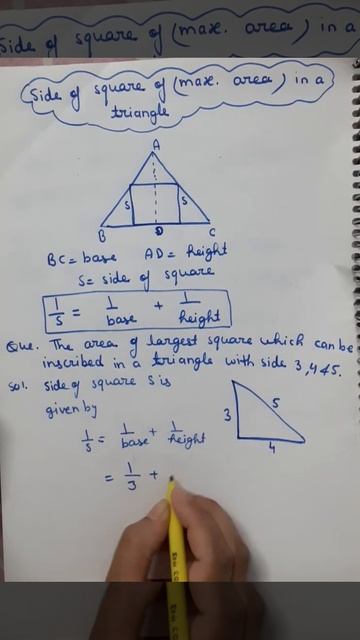 Side of square of (max. area) in a
Side of square of (max. area) in a
triangle
A
S
S
B
D
C
BC = base AD = height
S = side of square
1/S = 1/base + 1/height
Que. The area of largest square which can be
inscribed in a triangle with side 3,4&5.
Sol. Side of square S is
given by
3
5
4
1/S = 1/base + 1/height
= 1/3 +